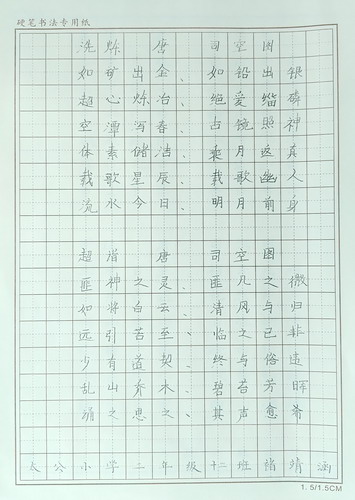 硬笔书法专用纸
洗炼 唐 司空图
如矿出金、如铅出银
超心炼冶、绝爱缁磷
空潭泻春、古镜照神
体素储洁、乘月返真
载歌星辰、载歌幽人
流水今日、明月前身
超诣 唐 司空图
匪神之灵、匪几之微
如将白云、清风与归
远引若至、临之已非
少有道契、终与俗违
乱山乔木、碧苔芳晖
诵之思之、其声愈希
太公小学二年级十二班 靖涵
1.5/1.5CM